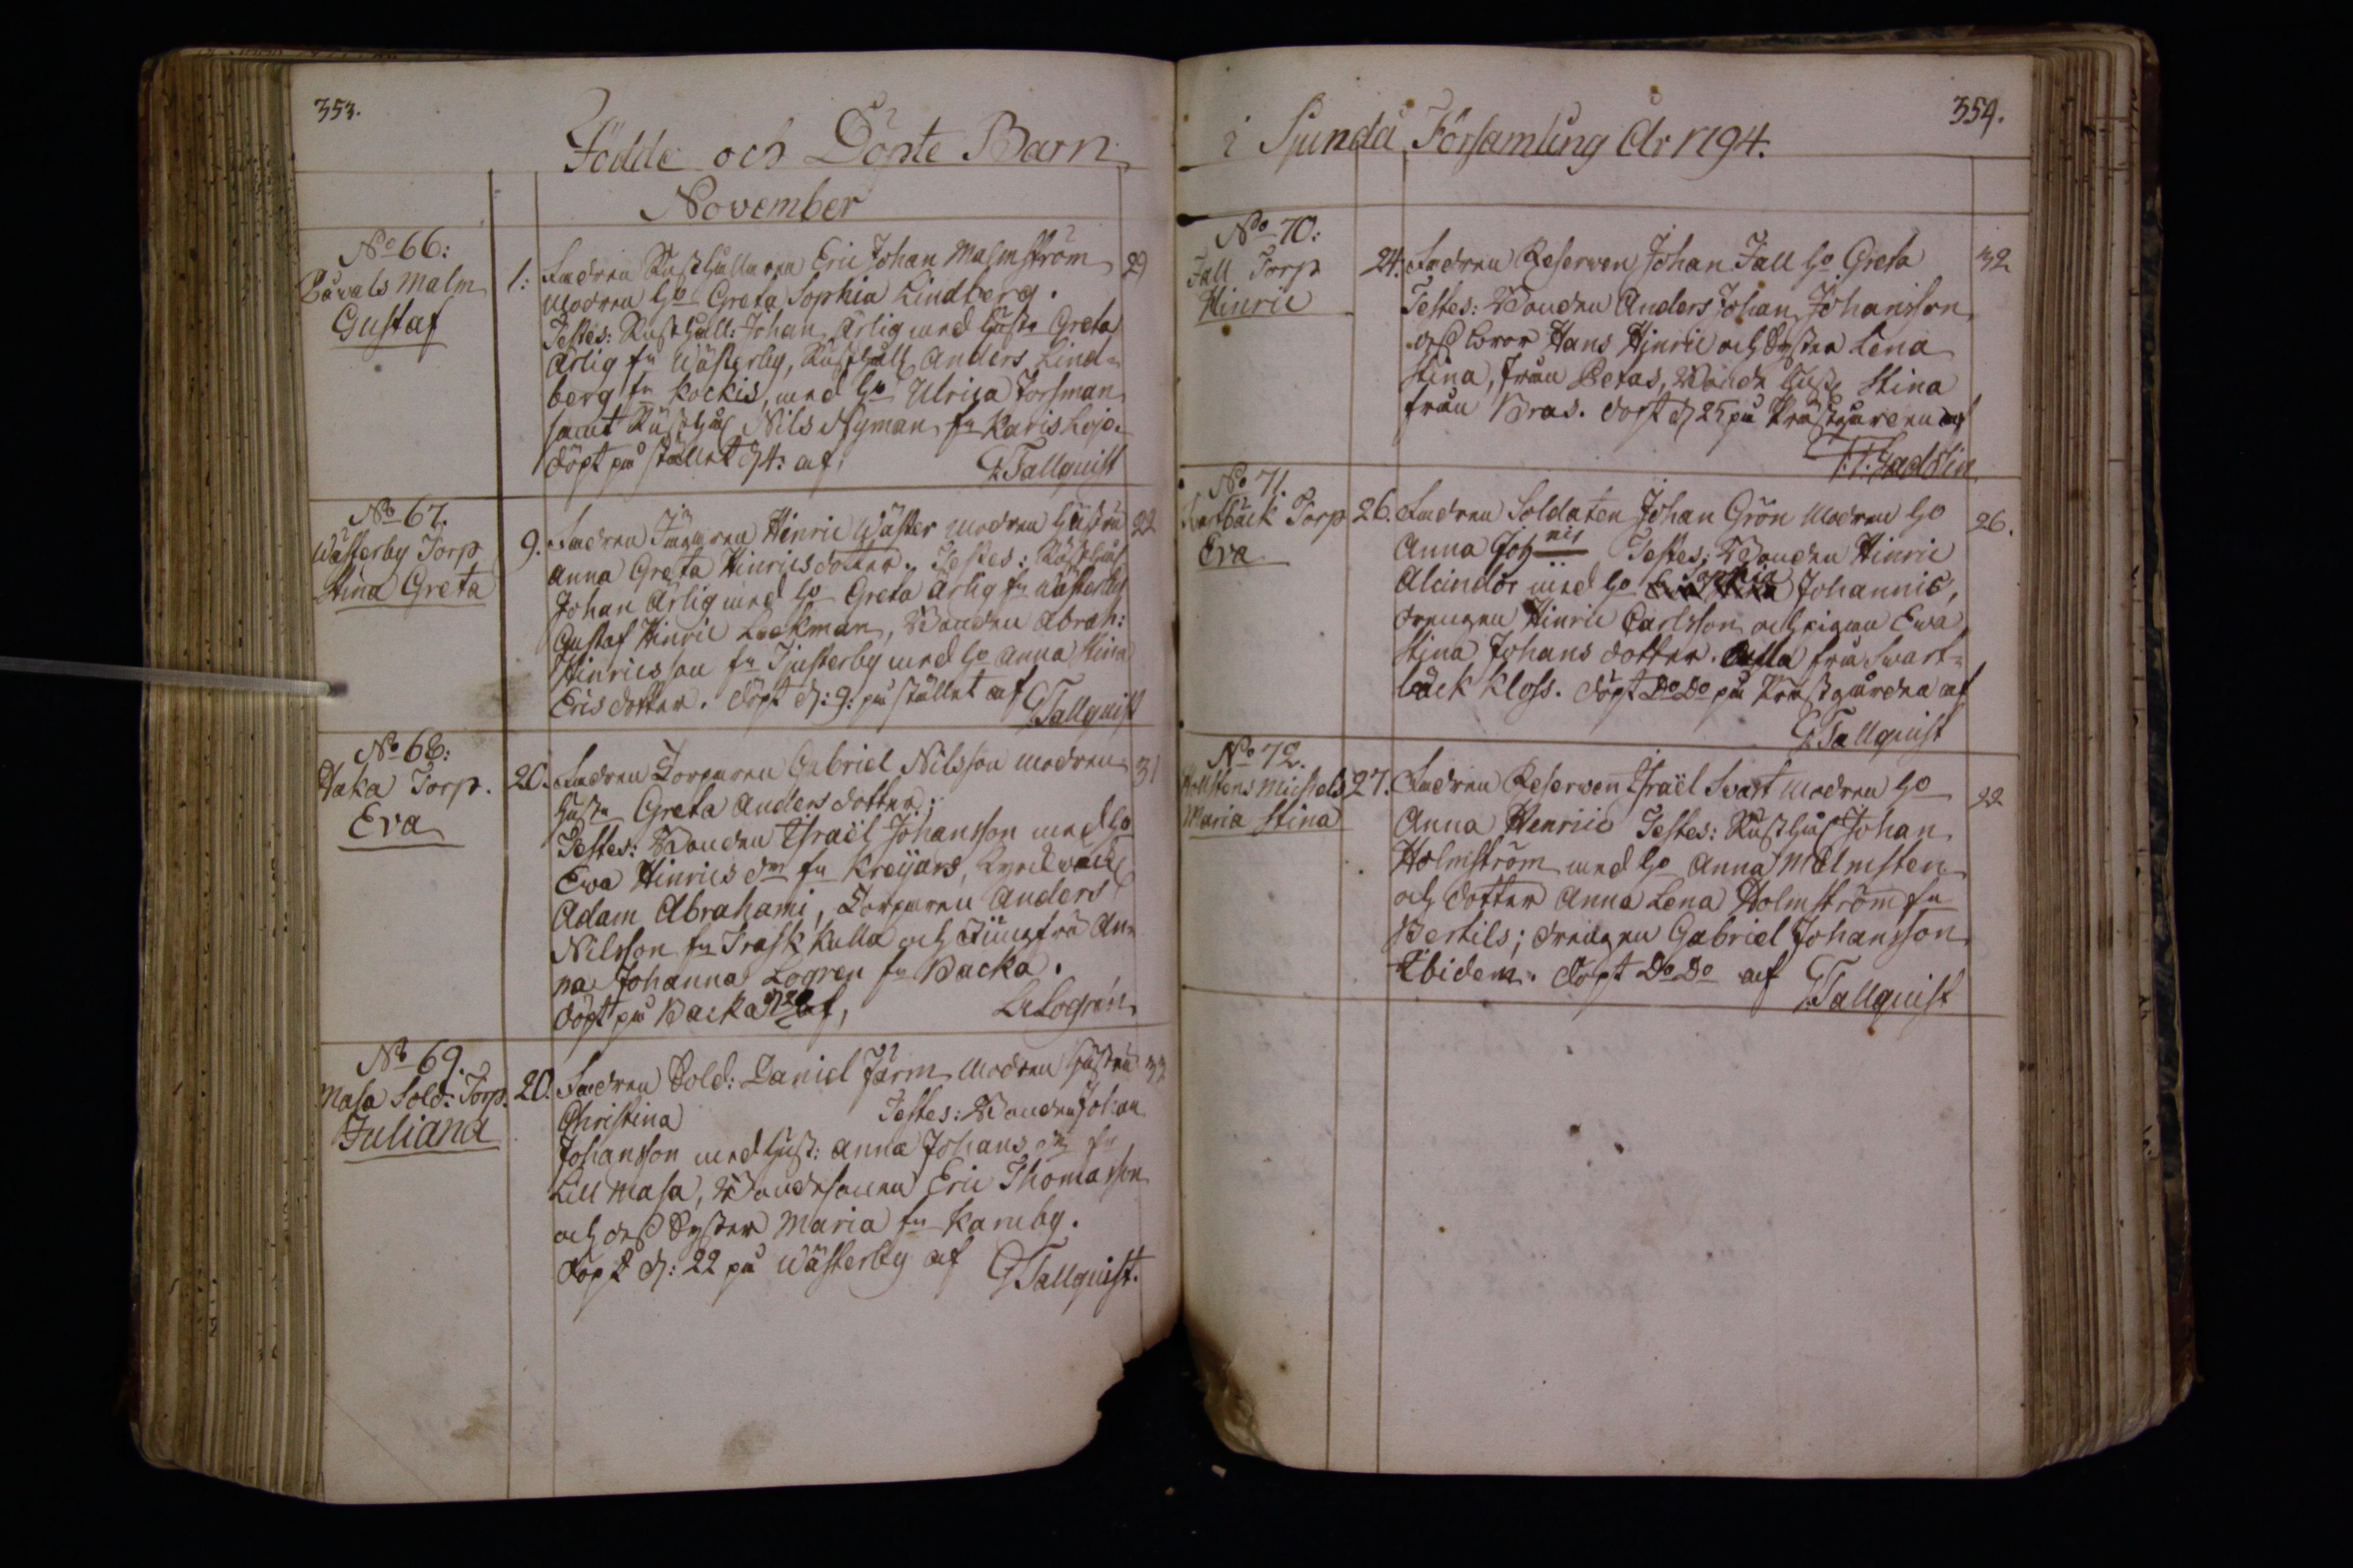 353.
Födde och Döpte Barn
November
No 66:
Båvals Malm
Gustaf
1:
Fadren Rusthållaren Eric Johan Malmström
29
Modren ho Greta Sophia Lindberg.
Testes: Rusthåll: Johan Ärlig med hustr Greta
Ärlig fn Wästerby, Rusthåll Anders Lind=
berg fn Kockis, med ho Ulrica Forsman
samt Rusthål Nils Nyman fn Karis Lojo
döpt på stället d 4: af,
G Tallquist
No 67.
Wästerby Torp
Stina Greta
9.
Fadren Hinric Wäster modren hustru
22
Anna Greta Hinricsdotter. Testes: Rusthål
Johan Ärlig med ho Greta Ärlig fn Wästerby
Gustaf Hinric Löckman, Bonden Abrah:
Hinricsson fn Tjusterby med ho Anna Stina
Ericsdotter. döpt d: 9: på stället af
G Tallquist
No 68:
Torp.
Eva
20.
Fadren Torparen Gabriel Nilsson modren
31
hustr Greta Andersdotter;
Testes: Bonden Israël Johansson med ho
Ewa Hinrics dr fn Kreijars,
Adam Abrahami, Torparen Anders
Nilsson fn Träsk Kulla och Jungfru An=
na Johanna Logren fn Backa.
döpt på Backa d 20 af,
Logrén
No 69.
Masa Sold: Torp.
Juliana
20.
Fadren Sold: Daniel Järm modren hustru
33
Christina
Testes: Bonden Johan
Johansson med hust: Anna Johans dr fn
Lill Masa, Bondsonen Eric Thomasson
och des Syster Maria fn Karnby.
döpt d: 22 på Wästerby af
G Tallquist.
i Sjundå Församling År 1794.
354.
No 70:
Fall Torp
Hinric
24.
Fadren Reserven Johan Fall ho Greta
32
Testes: Bonden Anders Johan Johansson
des bror Hans Hinric och Syster Lena
Stina, från Petas, Bonde hust Stina
från Bras. döpt d 25 på Prästgården af
Gaddlin
No 71.
Torp
Eva
26.
Fadren Soldaten Johan Grön Modren ho
26.
Anna Johnis Testes; Bonden Hinric
Alcindor med ho Sophia Johannis,
drengen Hinric Carlsson och pigan Ewa
Stina Johans dotter. Alla från Swart=
bäck Kloss. döpt Do Do på Prästgården af
G Tallquist
No 72.
Michels
Maria Stina
27.
Fadren Reserven Israël Svart modren ho
22
Anna Henrici Testes: Rusthål Johan
Holmström med ho Anna Malmsten
och dotter Anna Lena Holmström fn
Bertils; drengen Gabriel Johansson
Ibidem. döpt Do Do af
G Tallquist